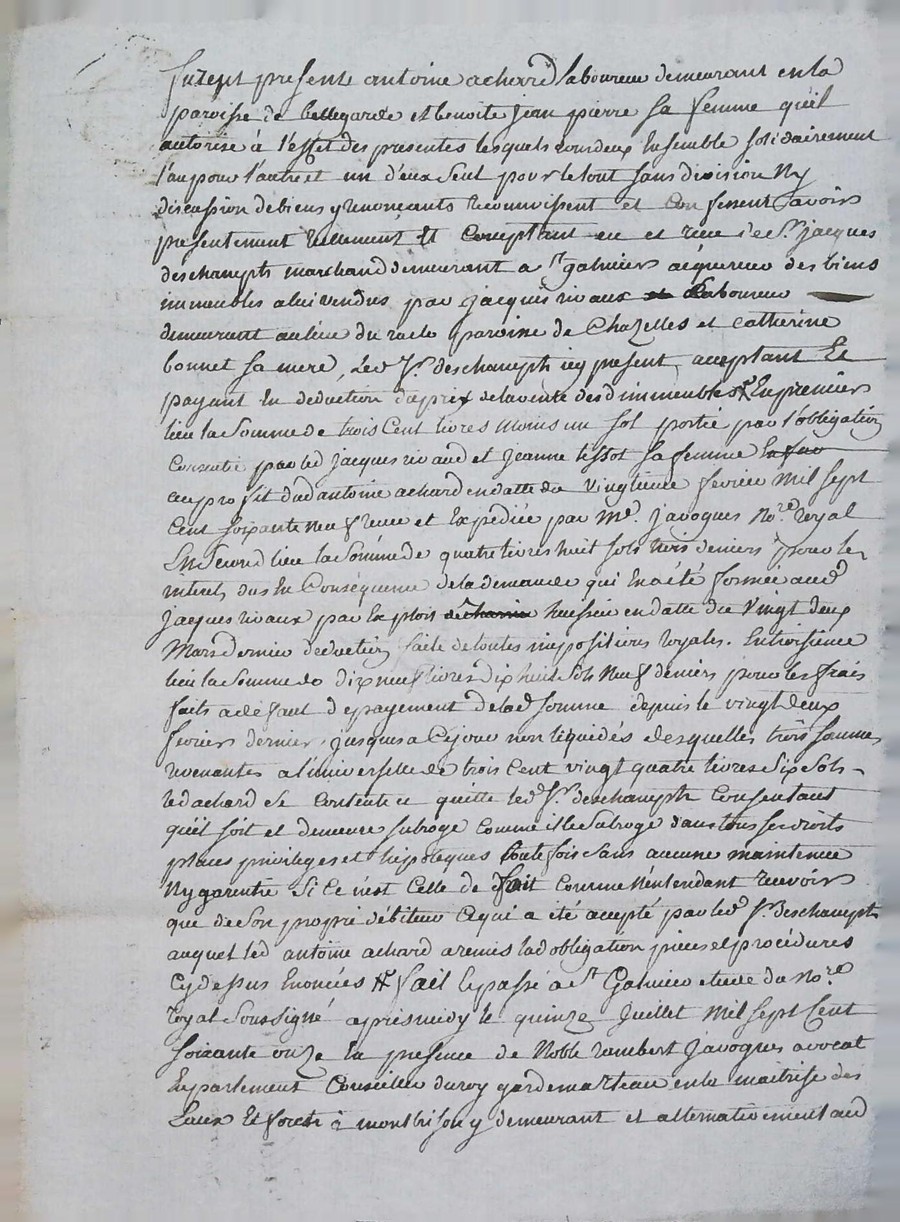 furent presents antoine achard laboureur demeurant en la
paroisse de bellegarde et benoite Jean pierre sa femme qu'il
autorise à l'effet des presentes lesquels tous deux Ensemble solidairement
l'un pour l'autre et un d'eux seul pour le tout sans division Ny
discussion de biens y renoncants reconnoissent et confessent avoir
presentement reellement Et comptant eu et recu de Sr. jacques
deschamph marchand demeurant a st galmier acquereur des biens
immeubles a lui vendus par jacques rivaux laboureur
demeurant au lieu du racle paroisse de Chazelles et catherine
bonnet sa mere, Led Sr. deschamph icy present, acceptant Et
payant En deduction du prix de la vente desd immeubles En premier
lieu la Somme de trois Cent livres moins un sol portée par l'obligation
Consentie par led jacques rivaud et jeanne tissot sa femme
au profit dud antoine achard en datte du vingtieme fevrier Mil sept
Cent soixante neuf recue et Expediée par Me. javoques Nore. royal
En second lieu la Somme de quatre livres huit sols trois deniers pour les
interets dus En Conséquence de la demande qui En a été formée aud
jacques rivaux par Exploit heussier en datte du vingt deux
Mars dernier deduction faite de toutes impositions royales. En troisieme
lieu la Somme de dix neuf livres dix huit Sols Neuf deniers pour les frais
faits a défaut de payement de lad somme depuis le vingt deux
fevrier dernier, jusques a Ce jour non liquidés desquelles trois sommes
revenantes a l'universelle de trois Cent vingt quatre livres Six Sols
led achard se contente et quitte led Sr. deschamph Consentant
qu'il soit et demeure subrogé comme il le subroge dans tous ses droits
places privileges et hipoteques toute fois sans aucune maintenue
Ny garentie si ce n'est celle de fait comme N'entendant recevoir
que de son propre débiteur Ce qui a été accepté par led Sr. deschamph
auquel led antoine achard a remis lad obligation pieces et procédures
Cy dessus Enoncées fait Et passé a St Galmier etude du Nore.
royal Soussigné apres midy le quinze Juillet Mil Sept Cent
soixante onze En presence de Noble rambert javogues avocat
En parlement Conseiller du roy garde marteau en la maitrise des
Eaux Et forets à montbrison y demeurant et alternativement aud